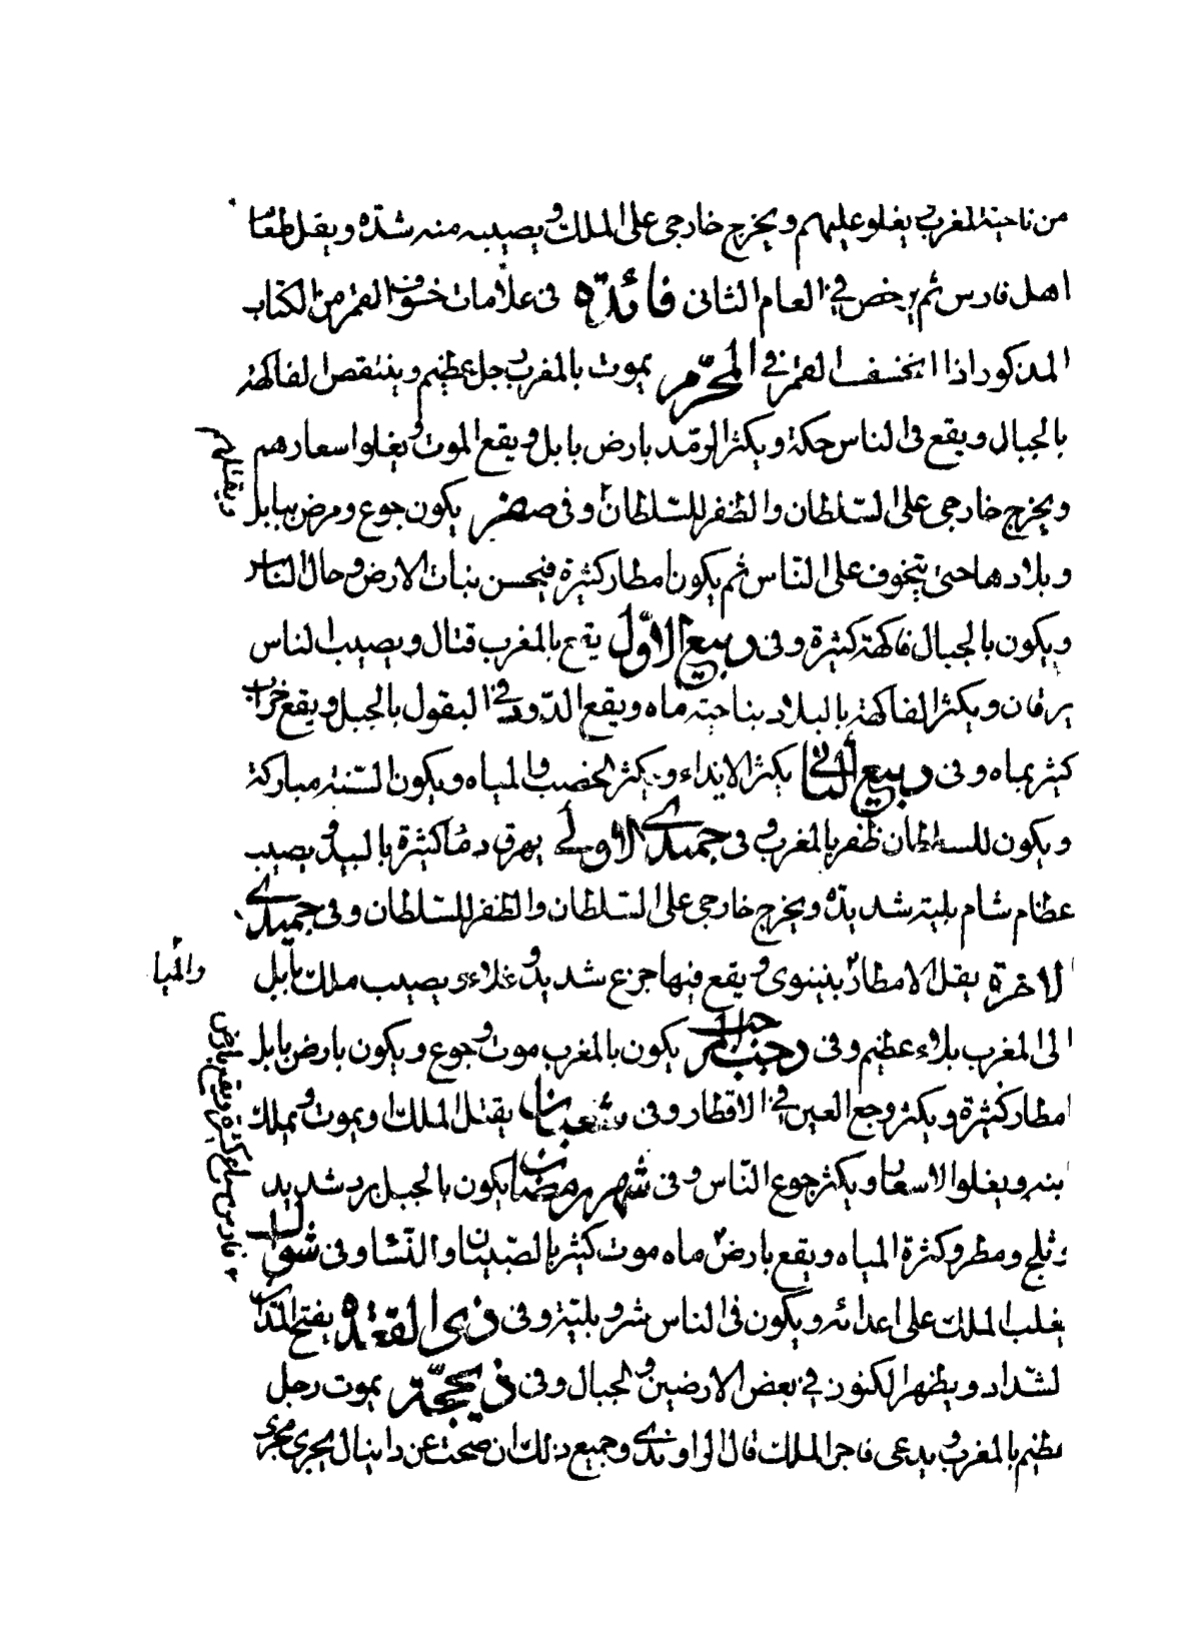 من ناحية المغرب يغلو عليهم ويخرج خارجى على الملك ويصيبه منه شدّة ويقل طعام
اهل فارس ثم يرخص فى العام الثانى فائدة فى علامات خسوف القمر من الكتاب
المذكور اذا انخسف القمر فى المحرّم يموت بالمغرب رجل عظيم وينتقص الفاكهة
بالجبال ويقع فى الناس حكة ويكثر الرمد بارض بابل ويقع الموت ويغلوا اسعارهم
ويخرج خارجى على السّلطان والظفر للسّلطان وفى صفر يكون جوع ومرض ببابل
وبلادها حتى يتخوف على النّاس ثم يكون امطار كثيرة فيحسن نبات الارض وحال الناس
ويكون بالجبال فاكهة كثيرة وفى ربيع الاوّل يقع بالمغرب قتال ويصيب الناس
يرقان ويكثر الفاكهة بالبلاد بناحية ماه ويقع الدّود فى البقول بالجبل ويقع خراب
كثير بماه وفى ربيع الثانى يكثر الانداء ويكثر الخصب والمياه ويكون السّنة مباركة
ويكون للسلطان ظفر بالمغرب و فى جميدى الاولى يهرق دماً كثيرة بالبيد ويصيب
عظام شام بلية شديدة ويخرج خارجى على السّلطان والظفر للسّلطان وفى جميدى
الاخرة يقل الامطار بنينوى ويقع فيها جزع شديد وغلاء ويصيب ملك بابل
الى المغرب بلاء عظيم وفى رجب المرجب يكون بالمغرب موت وجوع ويكون بارض بابل
امطار كثيرة ويكثر وجع العين فى الاقطار وفى شعبان يقتل الملك او يموت ويملك
ابنه ويغلوا الاسعار ويكثر جوع النّاس وفى شهر رمضان يكون بالجبل برد شديد
وثلج ومطر وكثرة المياه ويقع بارض ماه موت كثير بالصّبيان والنّسا وفى شوال
يغلب الملك على اعدائه ويكون فى الناس شر وبلية وفى ذى القعدة يفتح المدائن
الشداد ويظهر الكنوز فى بعض الارضين والجبال وفى ذى حجّة يموت رجل
عظيم بالمغرب ويدعى فاجر الملك قال الراوندى وجميع ذلك ان صحّت عن دانيال يجرى مجرى